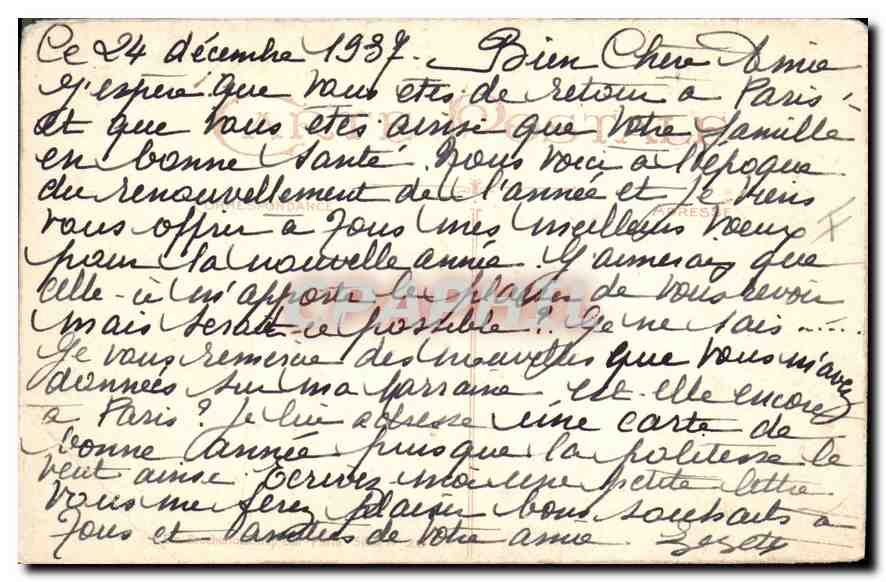 Ce 24 décembre 1937. Bien Chère Amie
J'espère que vous êtes de retour à Paris
et que vous êtes ainsi que votre famille
en bonne santé. Nous voici à l'époque
du renouvellement de l'année et je viens
vous offrir à tous mes meilleurs vœux
pour la nouvelle année. J'aimerais que
celle-ci m'apporte le plaisir de vous revoir
mais serait-ce possible? Je ne sais .....
Je vous remercie des nouvelles que vous m'avez
données sur ma marraine est-elle encore
à Paris? Je lui adresse une carte de
bonne année puisque la politesse le
veut ainsi. Ecrivez-moi une petite lettre
vous me ferez plaisir bons souhaits à
Tous et amitiés de votre amie. Zezette
CARTE POSTALE
CORRESPONDANCE
ADRESSE
CPAPHIL